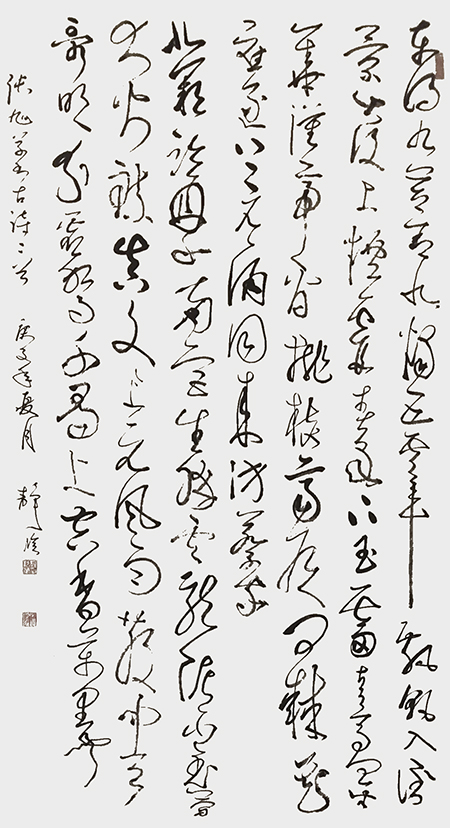 東明九芝蓋北燭五雲車飄飖入倒
景出没上煙霞春泉下玉霤青鳥向金
華漢帝看桃核齊侯問棘花
應逐上元酒同來訪蔡家
北闕臨丹水南宮生絳雲龍泥印玉簡
大火煉真文上元風雨散中天
哥吹分虛駕千尋上空香萬里聞
張旭草書古詩二首 庚子年夏月 靜